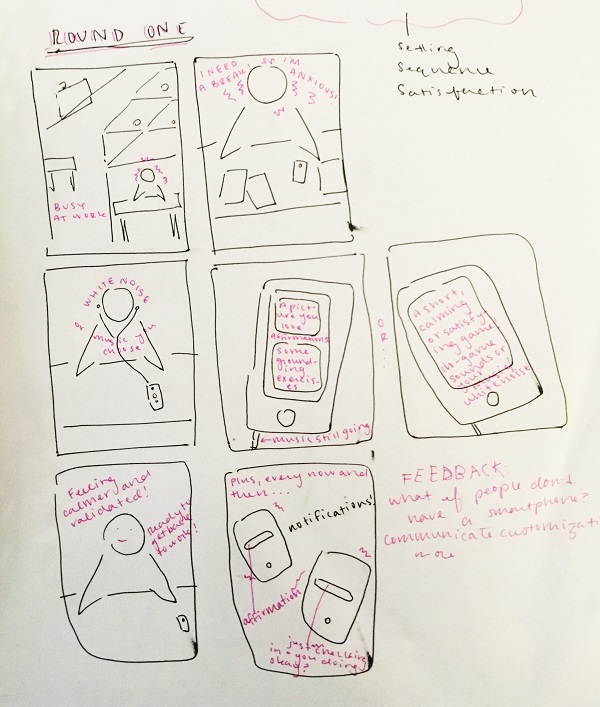 ROUND ONE
Setting
Sequence
Satisfaction
BUSY
AT WORK
I NEED
A BREAK!
I'M
ANXIOUS!
WHITE NOISE
or
music you
choose
A pict-
ure you
love
affirmations
some
ground-
ing
exercis-
es
←music still going
OR...
A short,
calming
or satisfy-
ing game!
in-game
sounds or
white noise
Feeling
calmer and
validated!
Ready to
get back
to work!
plus, every now and
then...
notifications!
affirmation
just checking
in - you doing
okay?
FEEDBACK:
what if people don't
have a smartphone?
communicate customizati
more